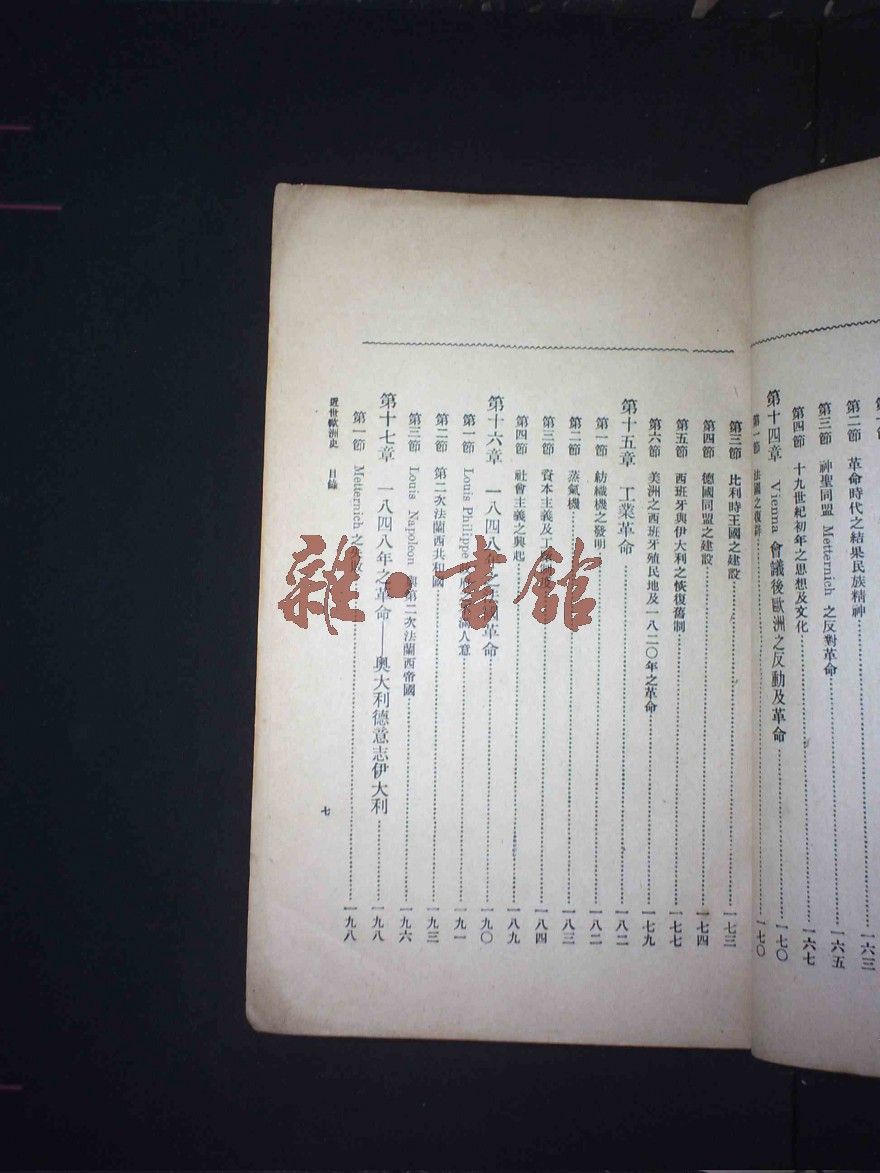 第二節 革命時代之結果民族精神 一六三
第三節 神聖同盟 Metternich 之反對革命 一六五
第四節 十九世紀初年之思想及文化 一六七
第十四章 Vienna 會議後歐洲之反動及革命 一七〇
第一節 法國之復辟 一七〇
第三節 比利時王國之建設 一七三
第四節 德國同盟之建設 一七四
第五節 西班牙與伊大利之恢復舊制 一七七
第六節 美洲之西班牙殖民地及一八二〇年之革命 一七九
第十五章 工業革命 一八二
第一節 紡織機之發明 一八二
第二節 蒸氣機 一八三
第三節 資本主義及工 一八四
第四節 社會主義之興起 一八九
第十六章 一八四八年之法國革命 一九〇
第一節 Louis Philippe 人意 一九一
第二節 第二次法蘭西共和國 一九三
第三節 Louis Napoleon 與第二次法蘭西帝國 一九六
第十七章 一八四八年之革命——奧大利德意志伊大利 一九八
第一節 Metternich 之失敗 一九八
近世歐洲史 目錄 七
雜·書館